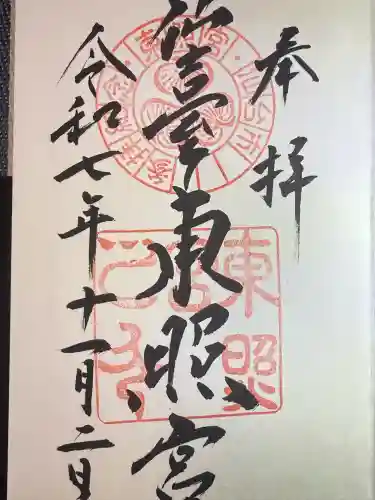 奉拝
仙臺東照宮
令和七年十一月二日
東照
宮